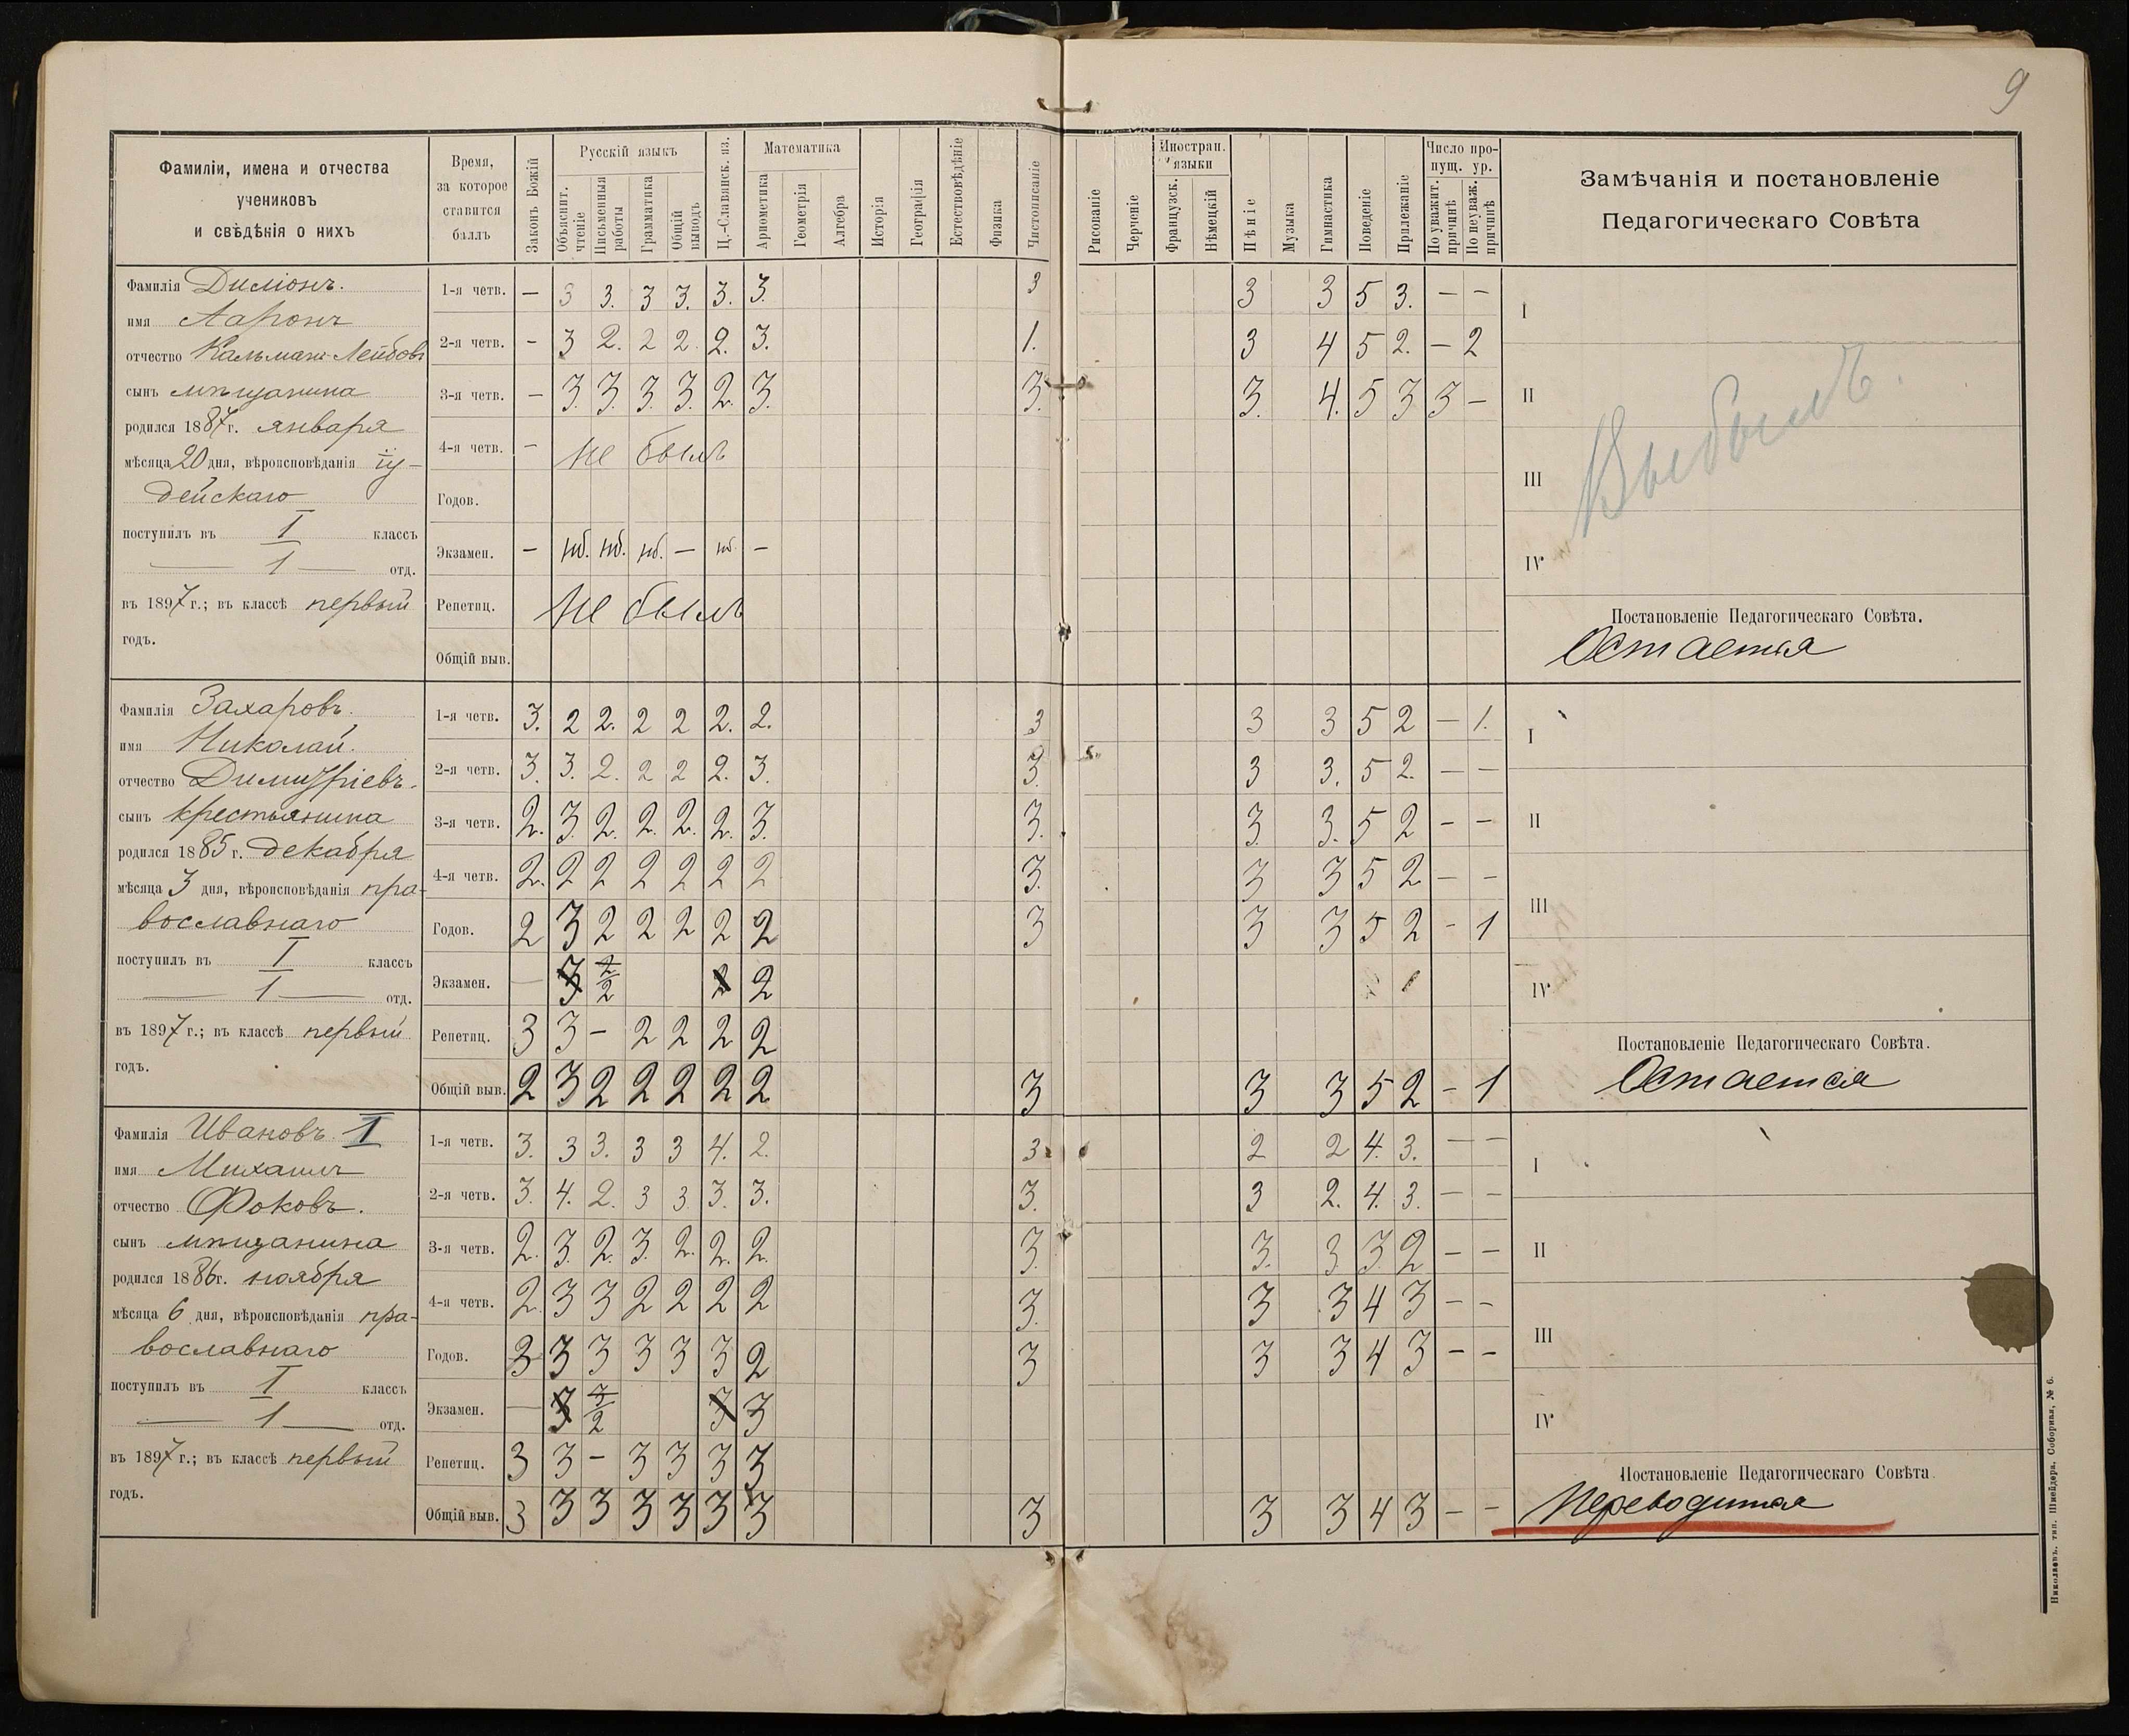 9
Фамиліи, имена и отчества
учениковъ
и свѣдѣнія о нихъ
Время,
за которое
ставится
баллъ
Законъ Божій
Русскій языкъ
Объяснит. чтеніе
Письменныя работы
Грамматика
Общій выводъ
Ц.-Славянск. яз.
Математика
Ариѳметика
Геометрія
Алгебра
Исторія
Географія
Естествовѣдѣніе
Физика
Чистописаніе
Рисованіе
Черченіе
Иностран. языки
Французск.
Нѣмецкій
Пѣніе
Музыка
Гимнастика
Поведеніе
Прилежаніе
Число про-
пущ. ур.
По уважит. причинѣ
По неуваж. причинѣ
Замѣчанія и постановленіе
Педагогическаго Совѣта
Фамилія Диліонъ.
имя Ааронъ
отчество Кальманъ-Лейбовъ
сынъ мѣщанина
родился 1887 г. января
мѣсяца 20 дня, вѣроисповѣданія іу-
дейскаго
поступилъ въ I классъ
— 1 — отд.
въ 1897 г.; въ классѣ первый
годъ.
1-я четв. — 3 3. 3 3. 3. 3. 3 3 3 5 3. — —
2-я четв. — 3 2. 2 2. 2. 3. 1. 3 4 5 2. — 2
3-я четв. — 3. 3. 3. 3. 2. 3. 3. 3. 4. 5 3 3 —
4-я четв. — не былъ
Годов.
Экзамен. — нб. нб. нб. — нб. —
Репетиц. не былъ
Общій выв.
I
II
III
IV
Выбылъ.
Постановленіе Педагогическаго Совѣта.
Остается
Фамилія Захаровъ.
имя Николай.
отчество Димитріевъ.
сынъ крестьянина
родился 1885 г. декабря
мѣсяца 3 дня, вѣроисповѣданія пра-
вославнаго
поступилъ въ I классъ
— 1 — отд.
въ 1897 г.; въ классѣ первый
годъ.
1-я четв. 3. 2 2. 2 2 2. 2. 3 3 3 5 2 — 1.
2-я четв. 3. 3. 2. 2 2 2. 3. 3. 3 3. 5 2. — —
3-я четв. 2. 3. 2. 2. 2. 2. 3. 3. 3. 3. 5 2 — —
4-я четв. 2. 2 2 2 2 2 2 3. 3 3 5 2 — —
Годов. 2 3 2 2 2 2 2 3 3 3 5 2 - 1
Экзамен. — 3 2/2 2 2
Репетиц. 3 3 — 2 2 2 2
Общій выв. 2 3 2 2 2 2 2 3 3 3 5 2 - 1
I
II
III
IV
Постановленіе Педагогическаго Совѣта.
Остается
Фамилія Ивановъ I
имя Михаилъ
отчество Фоковъ.
сынъ мѣщанина
родился 1886 г. ноября
мѣсяца 6 дня, вѣроисповѣданія пра-
вославнаго
поступилъ въ I классъ
— 1 — отд.
въ 1897 г.; въ классѣ первый
годъ.
1-я четв. 3. 3 3. 3 3 4. 2. 3 2 2 4. 3. — —
2-я четв. 3. 4. 2. 3 3 3. 3. 3. 3 2. 4. 3. — —
3-я четв. 2. 3. 2. 3. 2. 2. 2. 3. 3. 3 3 2 — —
4-я четв. 2. 3 3 2 2 2 2 3. 3 3 4 3 — —
Годов. 3 3 3 3 3 3 2 3 3 3 4 3 — —
Экзамен. — 3 3/2 3 3
Репетиц. 3 3 — 3 3 3 3
Общій выв. 3 3 3 3 3 3 3 3 3 3 4 3 — —
I
II
III
IV
Постановленіе Педагогическаго Совѣта.
Переводится
Николаевъ. тип. Шнейдера, Соборная, № 6.